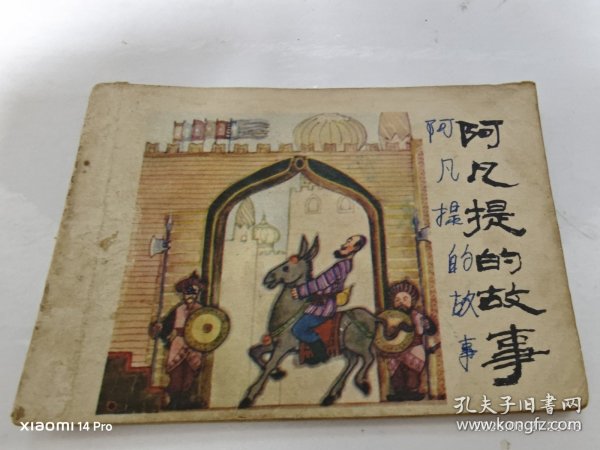 阿凡提的故事
阿凡提的故事
xiaomi 14 Pro
孔夫子旧书网
www.kongfz.com